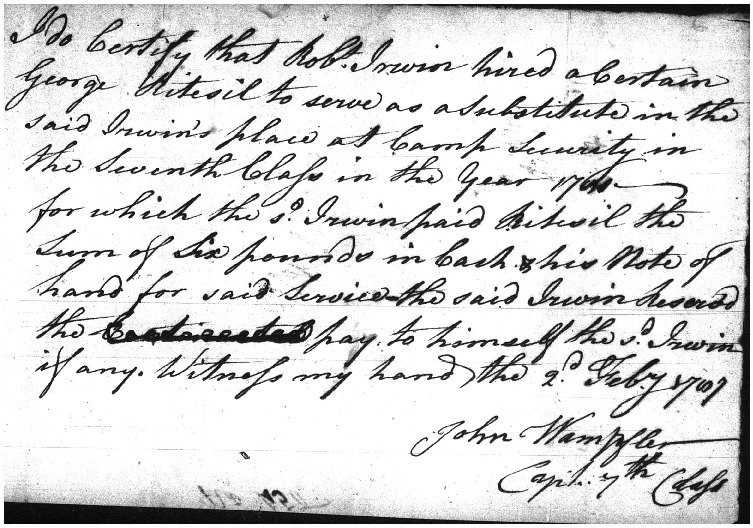 I do Certify that Robt. Irwin hired a Certain
George Ritesil to serve as a Substitute in the
said Irwin's place at Camp Security in
the Seventh Class in the Year
for which the sd. Irwin paid Ritesil the
Sum of Six pounds in Cash & his Note of
hand for said Service the said Irwin Reservd
the pay to himself the sd. Irwin
if any. Witness my hand the 2d. Feby
John Wampfler
Capt. 7th Class